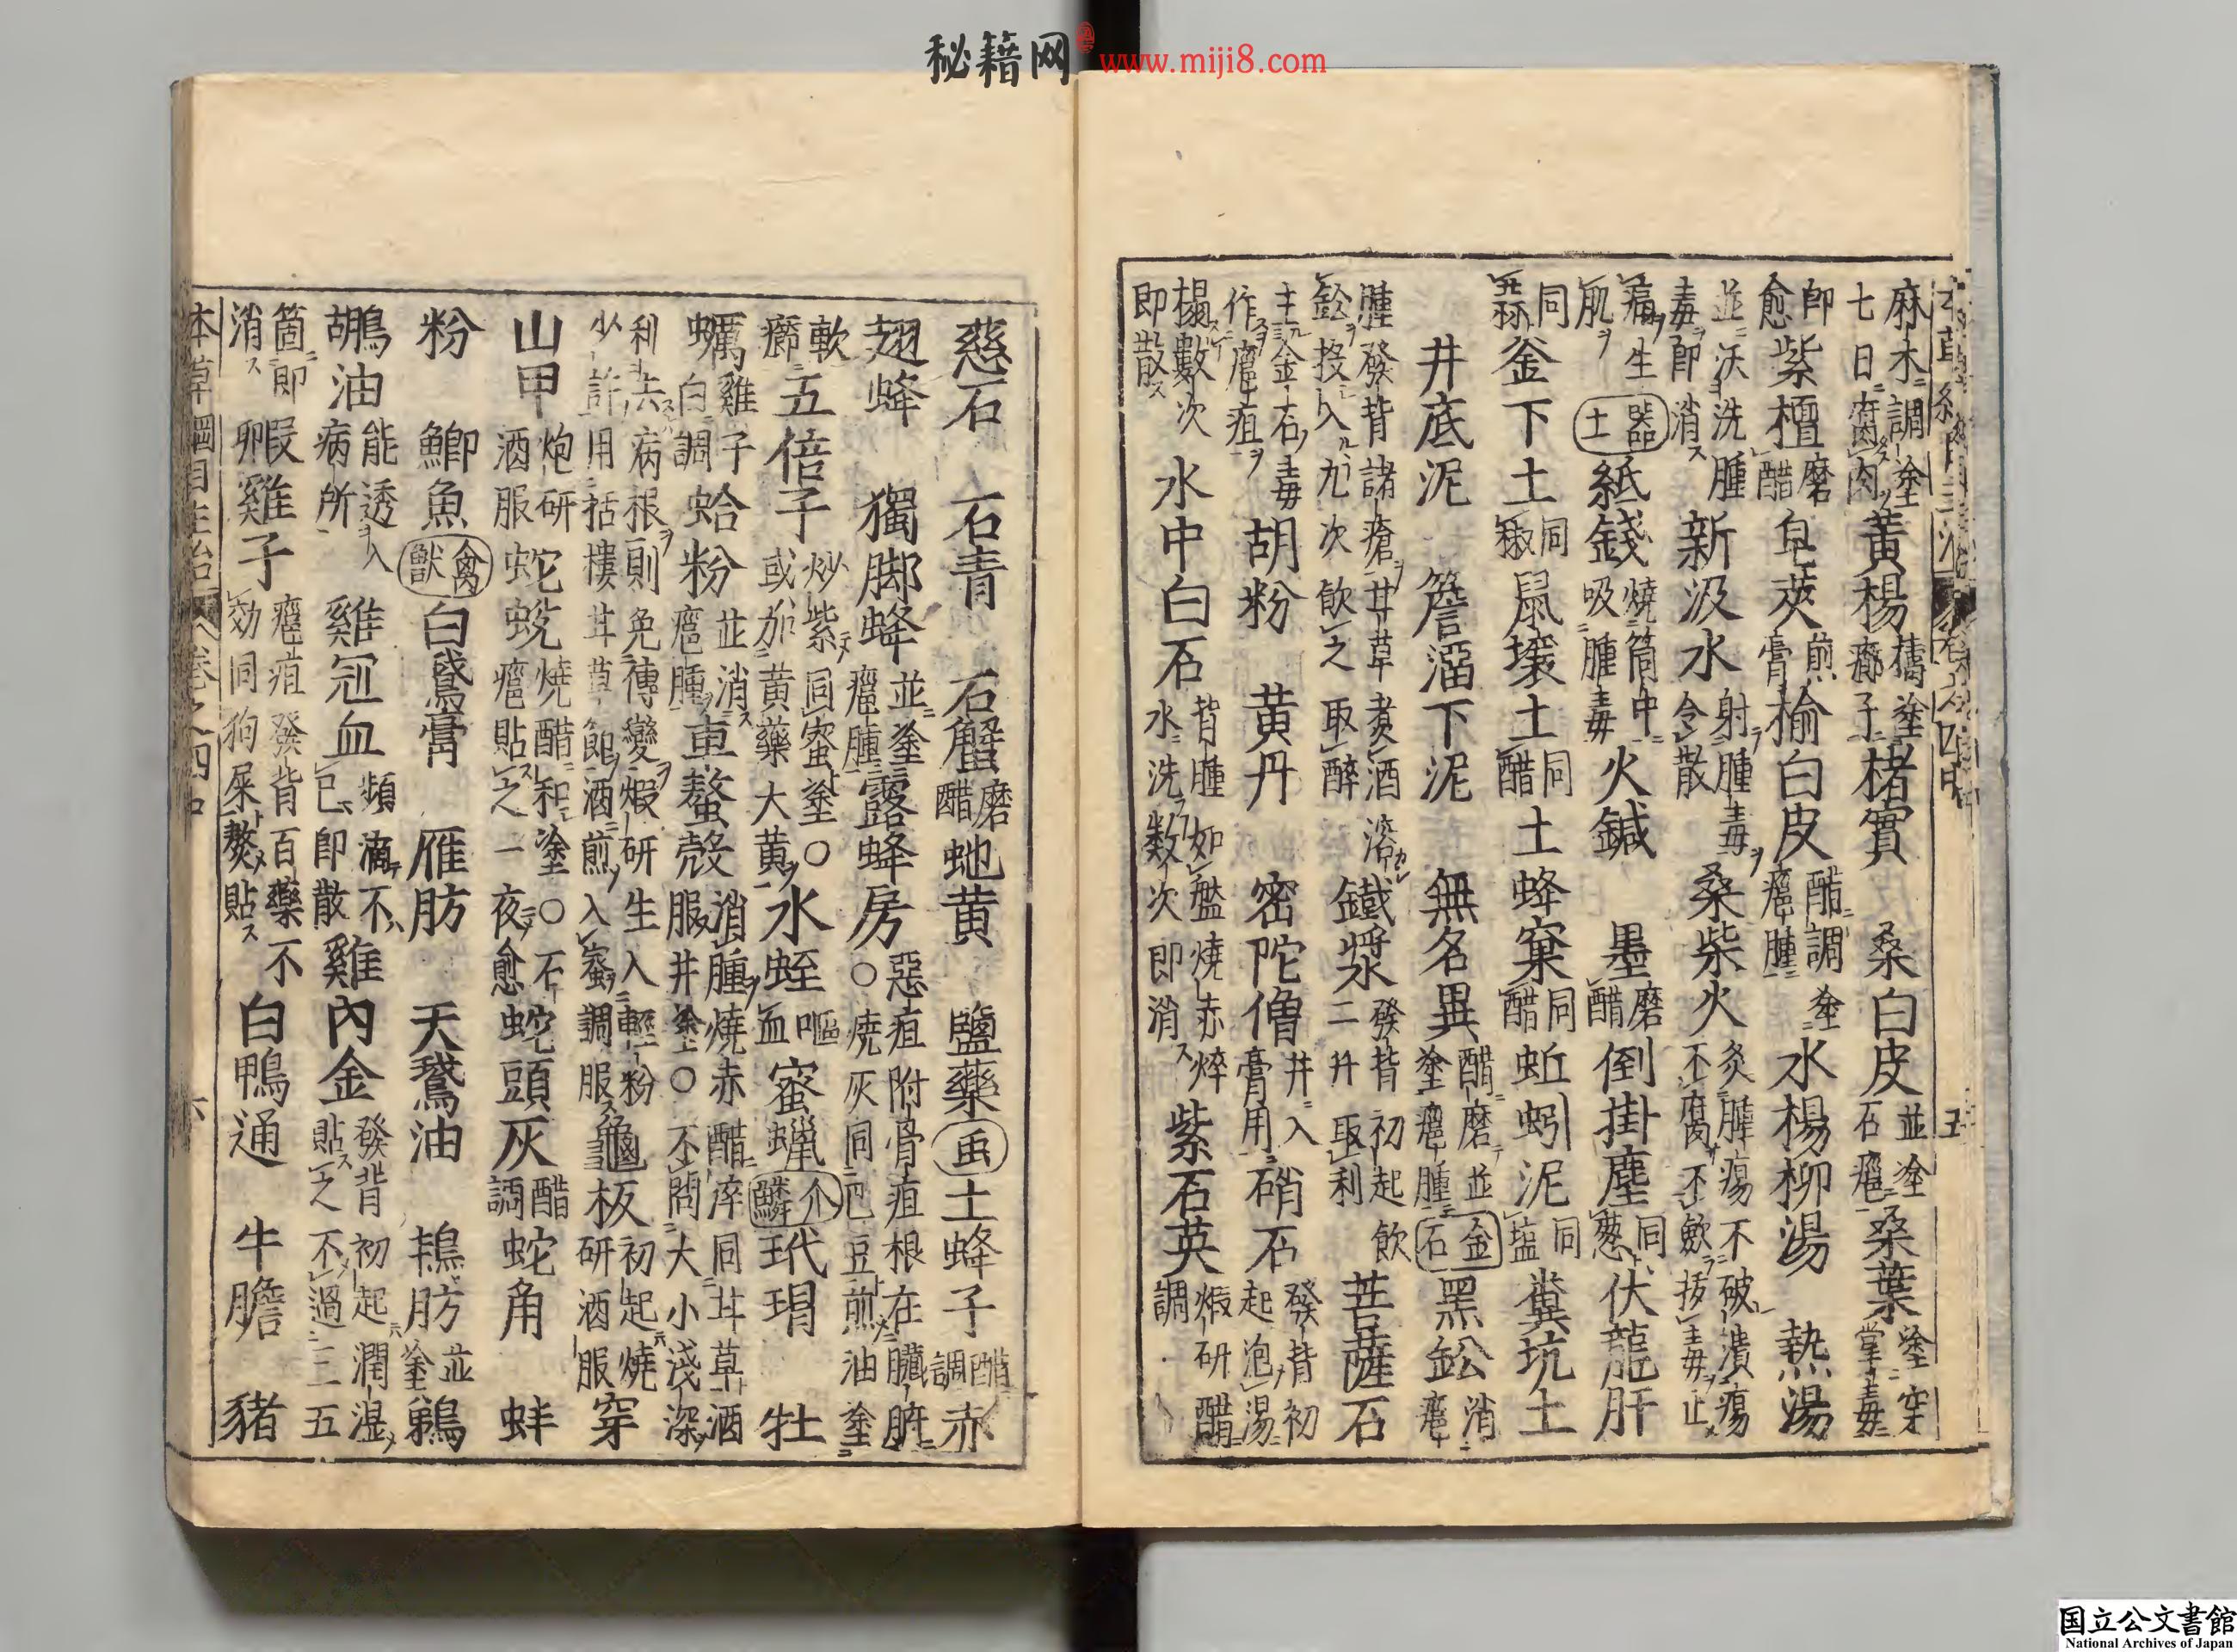 秘籍网 www.miji8.com
麻木調塗七日腐肉黃楊擣塗癤子楮實 桑白皮並塗石癰桑葉塗穿掌毒
即愈紫檀磨醋皂莢煎膏榆白皮醋調塗癰腫水楊柳湯 熱湯
並沃洗腫毒即消新汲水射腫毒令散桑柴火灸腫瘍不破潰瘍不腐不斂拔毒止
痛生肌土器紙錢燒筒中吸腫毒火鍼 墨磨醋倒掛塵同葱伏龍肝
同蒜釜下土同椒鼠壤土同醋土蜂窠同醋蚯蚓泥同塩糞坑土
井底泥 簷溜下泥 無名異醋磨塗癰腫並金石黑鈆消癰
腫發背諸瘡甘草煮酒溶鈆投入九次飲之取醉鐵漿發背初起飲二升取利菩薩石
主金石毒作癰疽胡粉 黃丹 密陀僧並入膏用硝石發背初起泡湯
搨數次即散水中白石背腫如盤燒赤焠水洗數次即消紫石英煅研醋調
慈石 石青 石蟹磨醋蚫黃 鹽藥虫土蜂子醋調赤
翅蜂 獨脚蜂並塗癰腫露蜂房惡疽附骨疽根在臟腑○燒灰同巴豆煎油塗
軟癤五倍子炒紫同蜜塗○或加黃藥大黃水蛭嘔血蜜蠟介鱗玳瑁 牡
蠣雞子白調蛤粉並消癰腫車螯殼消腫燒赤醋淬同甘草酒服并塗○不問大小淺深
利去病根則免傳變煅研生入輕粉少許用括樓甘草節酒煎入蜜調服龜板初起燒研酒服穿
山甲炮研酒服蛇蛻燒醋和塗○石癰貼之一夜愈蛇頭灰醋調蛇角 蚌
粉 鯽魚禽獸白鵞膏 雁肪 天鵞油 鴇肪並塗鵜
鶘油能透入病所雞冠血頻滴不已即散雞內金發背初起潤濕貼之不過三五
箇即消叚雞子癰疽發背百藥不効同狗屎熬貼白鴨通 牛膽 豬
本草綱目主治 卷之四中 六
国立公文書館
National Archives of Japan